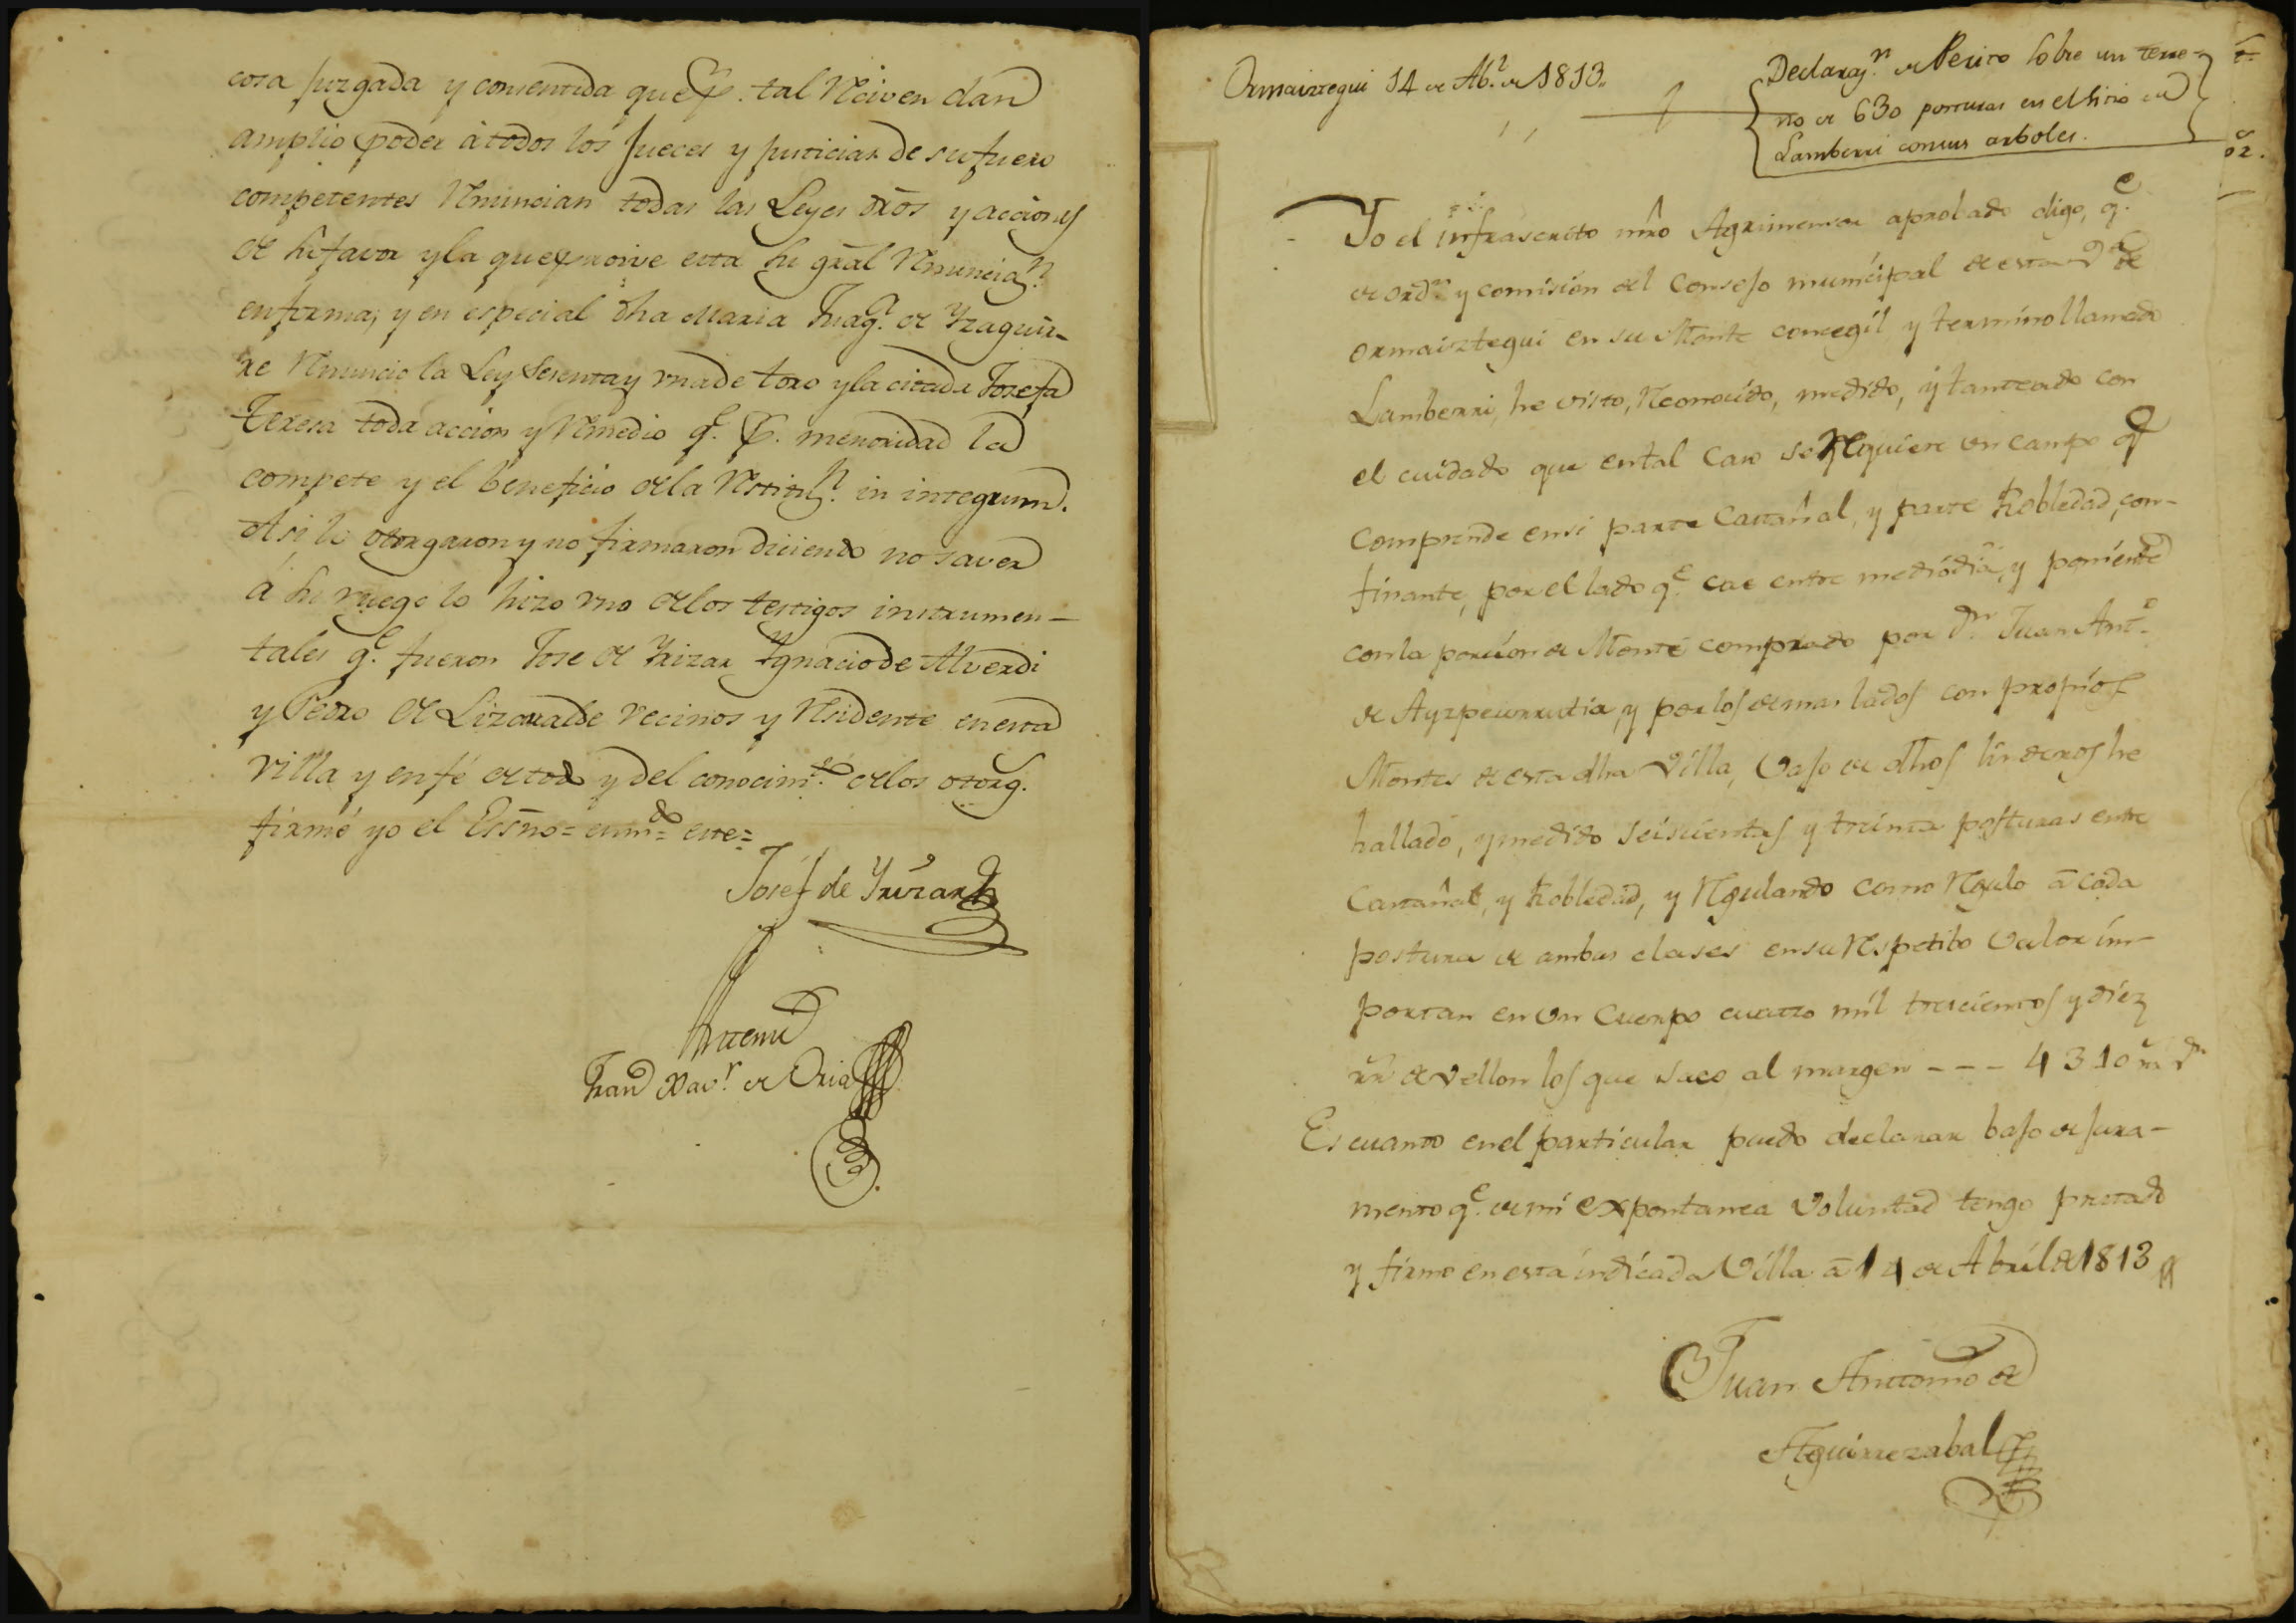 cosa juzgada y consentida que p.r tal reciven dan
amplio poder à todos los Jueces y justicias de su fuero
competentes renuncian todas las Leyes dros y acciones
de su favor y la que proive esta su gral renunciaⁿ.
en forma; y en especial dha Maria Juaq.ª de Yzaguir-
re renuncio la Ley Sesenta y una de toro y la citada Josefa
Teresa toda accion y remedio q.e p.r menoridad la
compete y el beneficio de la restituⁿ. in integrum.
Asi lo otorgaron y no firmaron diciendo no saver
á su ruego lo hizo uno de los testigos instrumen-
tales q.e fueron Jose de Yrizar Ygnacio de Alverdi
y Pedro de Lizaralde vecinos y residente en esta
villa y en fé de todo y del conocim.to de los otorg.s
firmé yo el Essno = enm.do = este =
Josef de Yrizar
Antemi
Fran.co Xav.r de Oria
Ormaiztegui 14 de Ab.l de 1813.
Declaraz.n de Perito sobre un terre-
no de 630 posturas en el sitio de
Lamberri con sus arboles.
Yo el infrascrito mro Agrimensor aprobado digo, q.e
de ord.n y comisión del Consejo municipal de esta V.ª de
Ormaiztegui en su Monte concegil y termino llamado
Lamberri, he visto, reconocido, medido, y tanteado con
el cuidado que en tal caso se requiere un campo q.e
comprende en si parte Castañal, y parte Robledad, con-
finante, por el lado q.e cae entre mediodia, y poniente
con la porción de Monte comprado por D.n Juan Ant.o
de Ayzpeurrutia, y por los demas lados con propios
Montes de esta dha Villa, Vajo de dhos linderos he
hallado, y medido seiscientas y treinta posturas entre
Castañal, y Robledad, y regulando como regulo à cada
postura de ambas clases en su respetibo Valor im-
portan en un Cuerpo cuatro mil trescientos y diez
rr.s de vellon los que saco al margen - - - 4310 rr.s v.n
Es cuanto en el particular puedo declarar bajo de jura-
mento q.e de mi expontanea Voluntad tengo prestado
y firmo en esta indicada Villa à 14 de Abril de 1813
Juan Antonio de
Aguirrezabal